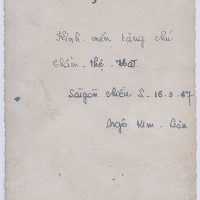 Kính mến tặng chú
Thân - thệ -
Saigon chiều 5 - 16 - 3 - 67
Ngô Kim - Liên